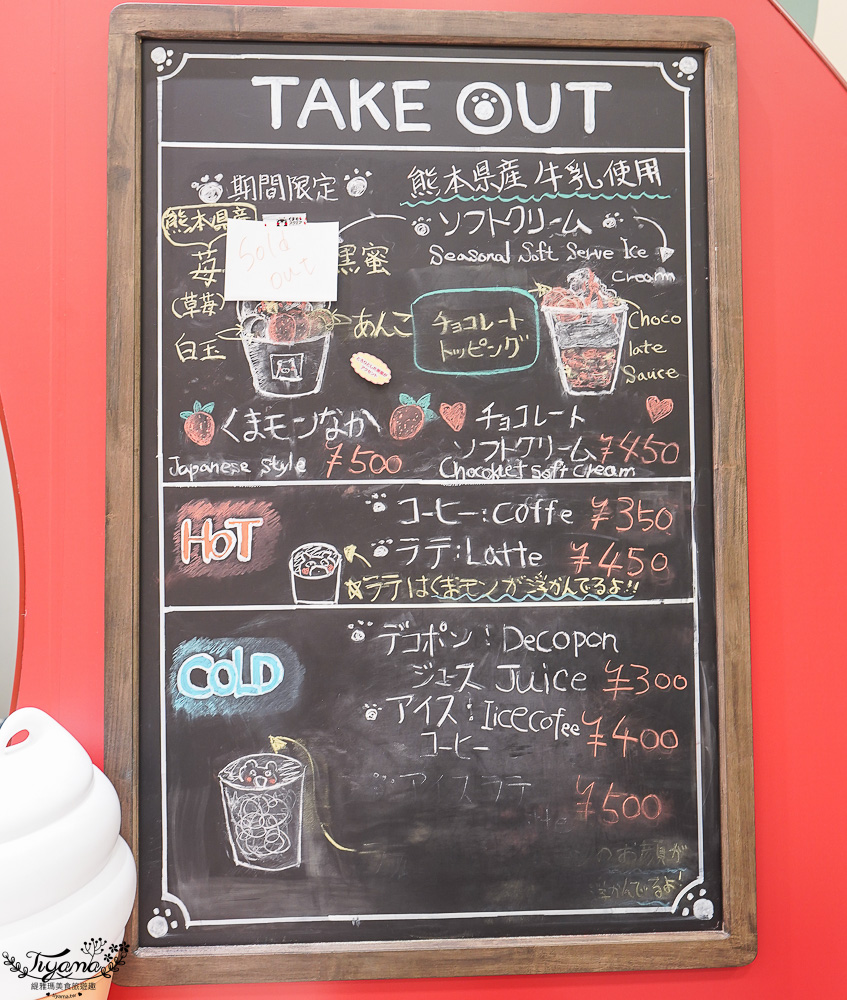 TAKE OUT
期間限定
熊本県産
Sold
out
苺
黒蜜
(草苺)
あんこ
白玉
くまモンなか
Japanese style ¥500
熊本県産牛乳使用
ソフトクリーム
Seasonal Soft Serve Ice
Cream
チョコレート
トッピング
Choco
late
Sauce
チョコレート
ソフトクリーム ¥450
Chocoket soft cream
HOT
コーヒー:Coffe ¥350
ラテ:Latte ¥450
☆ラテはくまモンが浮かんでるよ!!
COLD
デコポン:Decopon
ジュース Juice ¥300
アイス:Iicecofee ¥400
コーヒー
アイスラテ ¥500
のお顔が
浮かんでるよ!
Tiyama
緹雅瑪美食旅遊趣
tiyama.tw